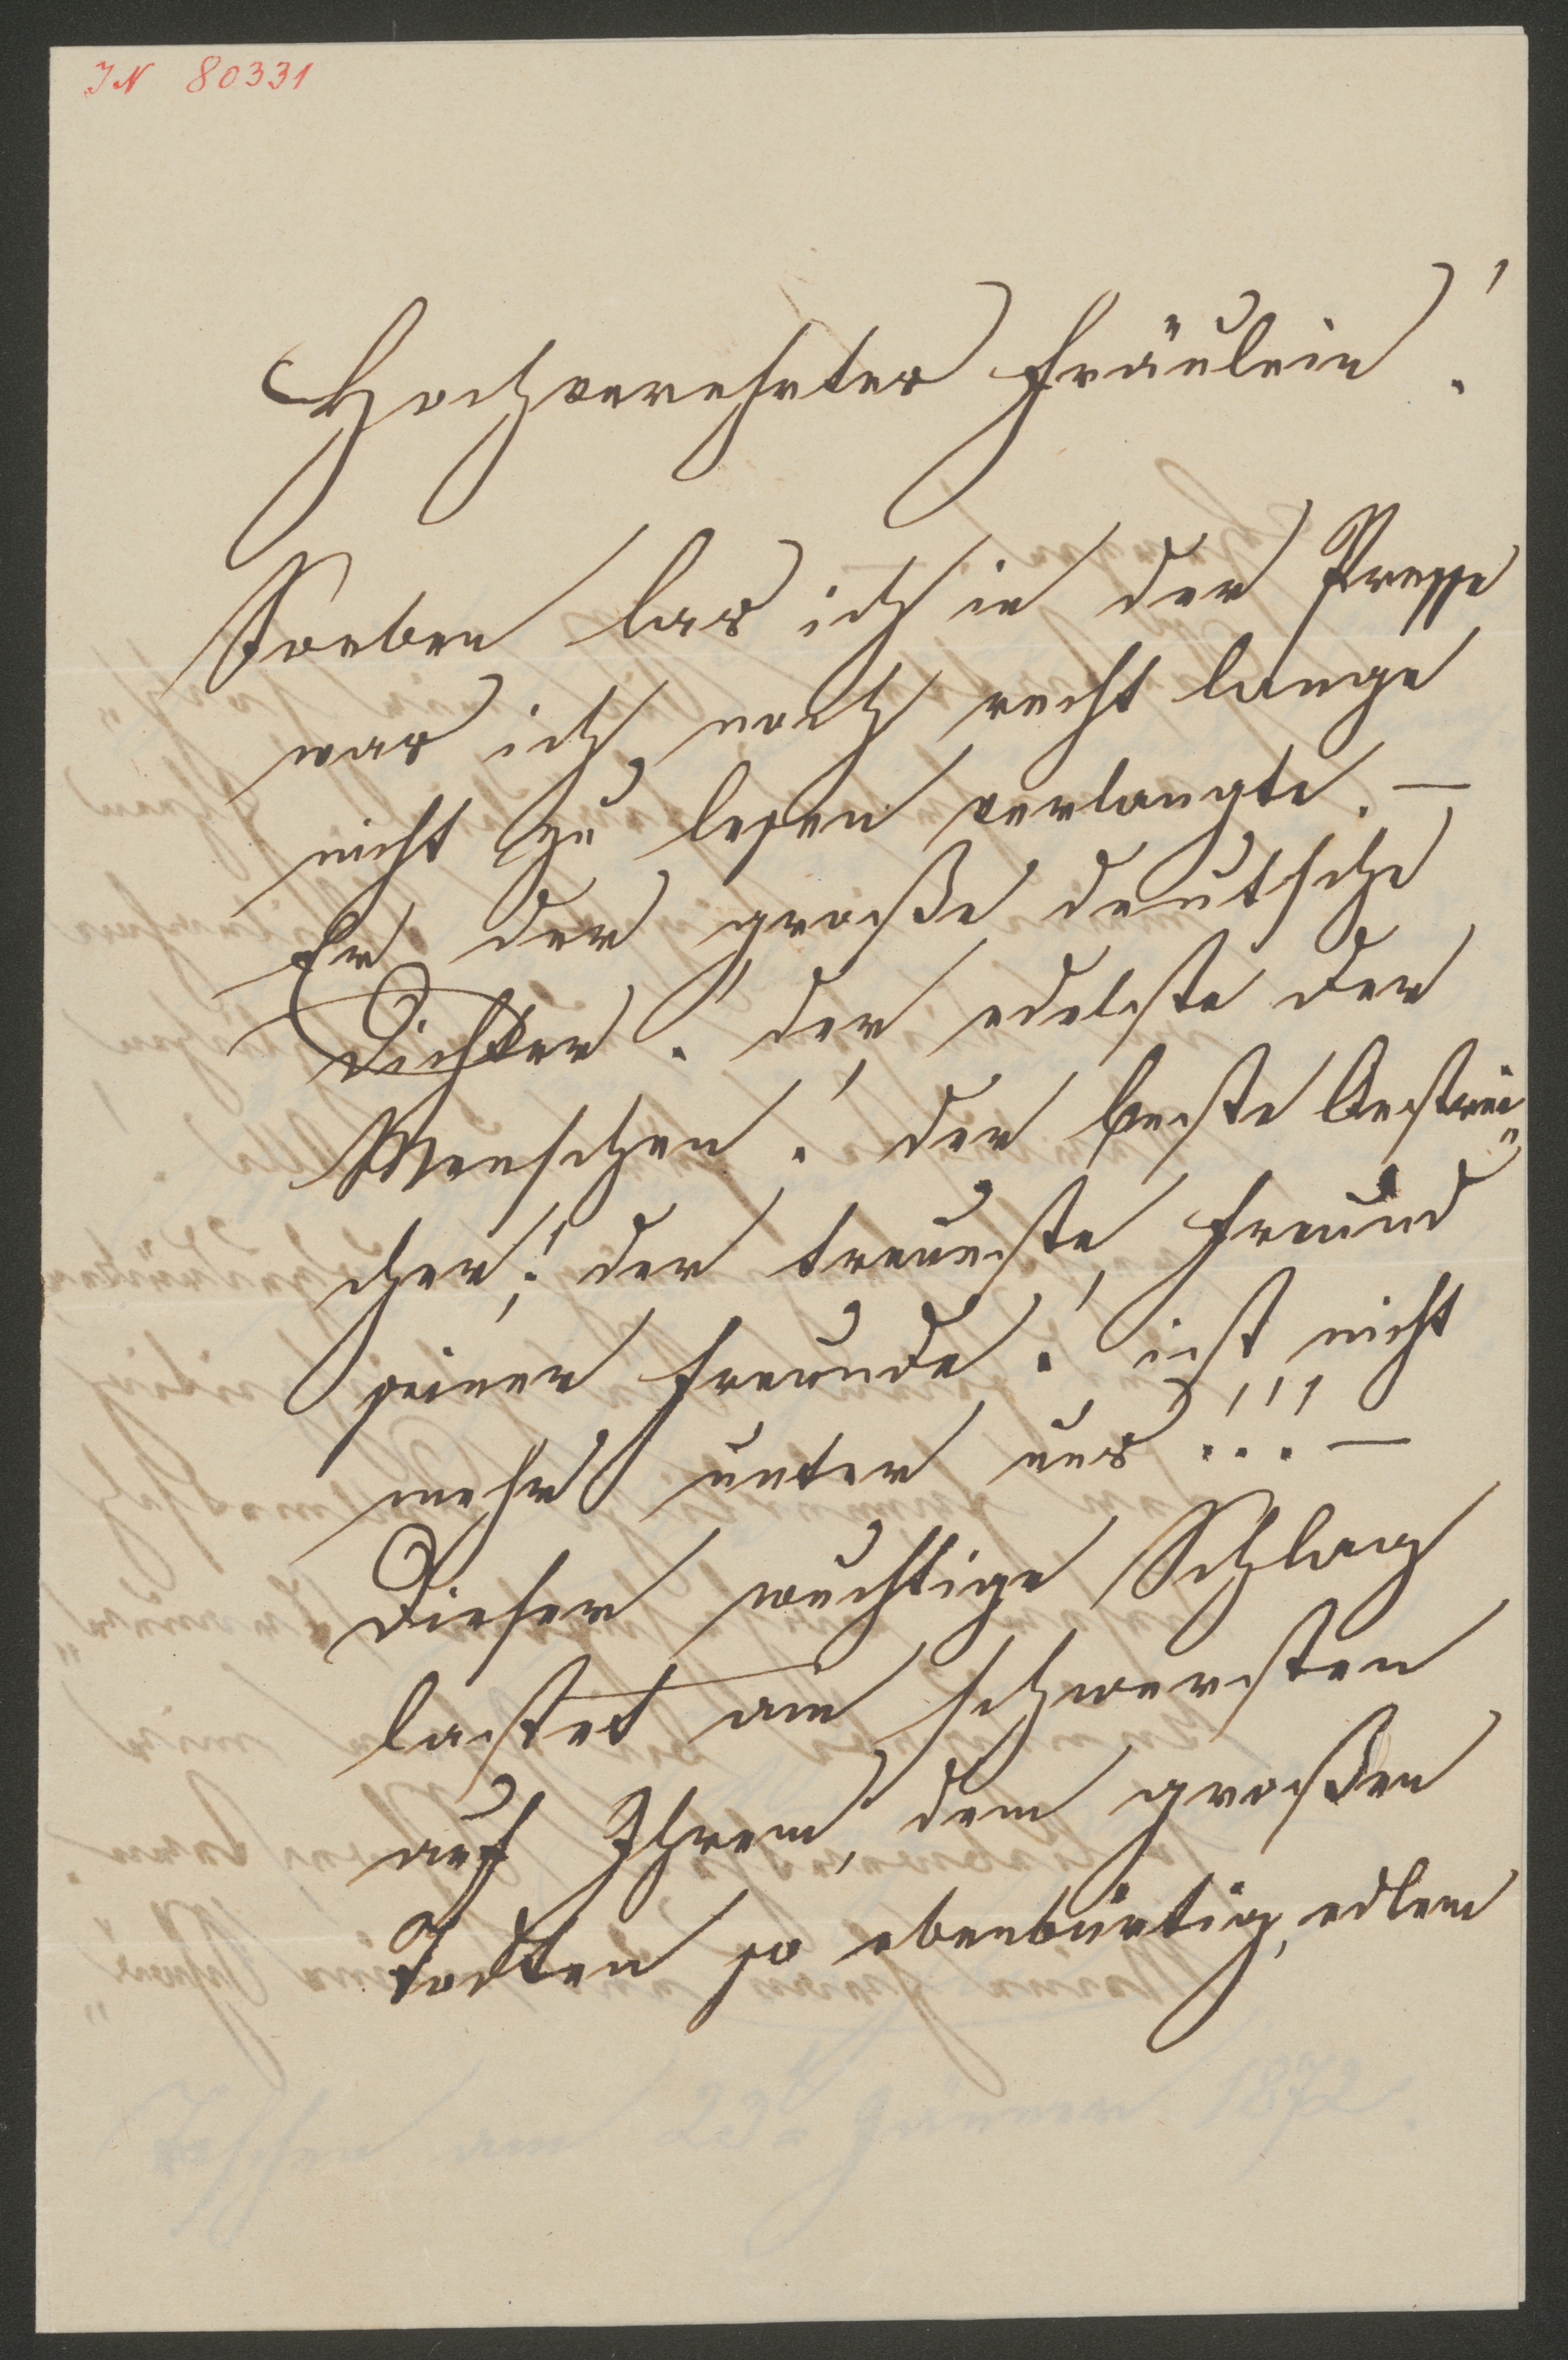 IN 80331
Hochverehrtes Fräulein!
Soeben las ich in der Presse
was ich noch recht lange
nicht zu lesen verlangte. —
Er der große deutsche
Dichter! der edelste der
Menschen! der beste Oestrei„
cher! der treueste Freund
seiner Freunde! ist nicht
mehr unter uns!!! —
Dieser wuchtige Schlag
lastet am schwersten
auf Ihrem, dem großen
Todten so ebenbürtig, edlem
Teschen am 23t Jänner 1872.